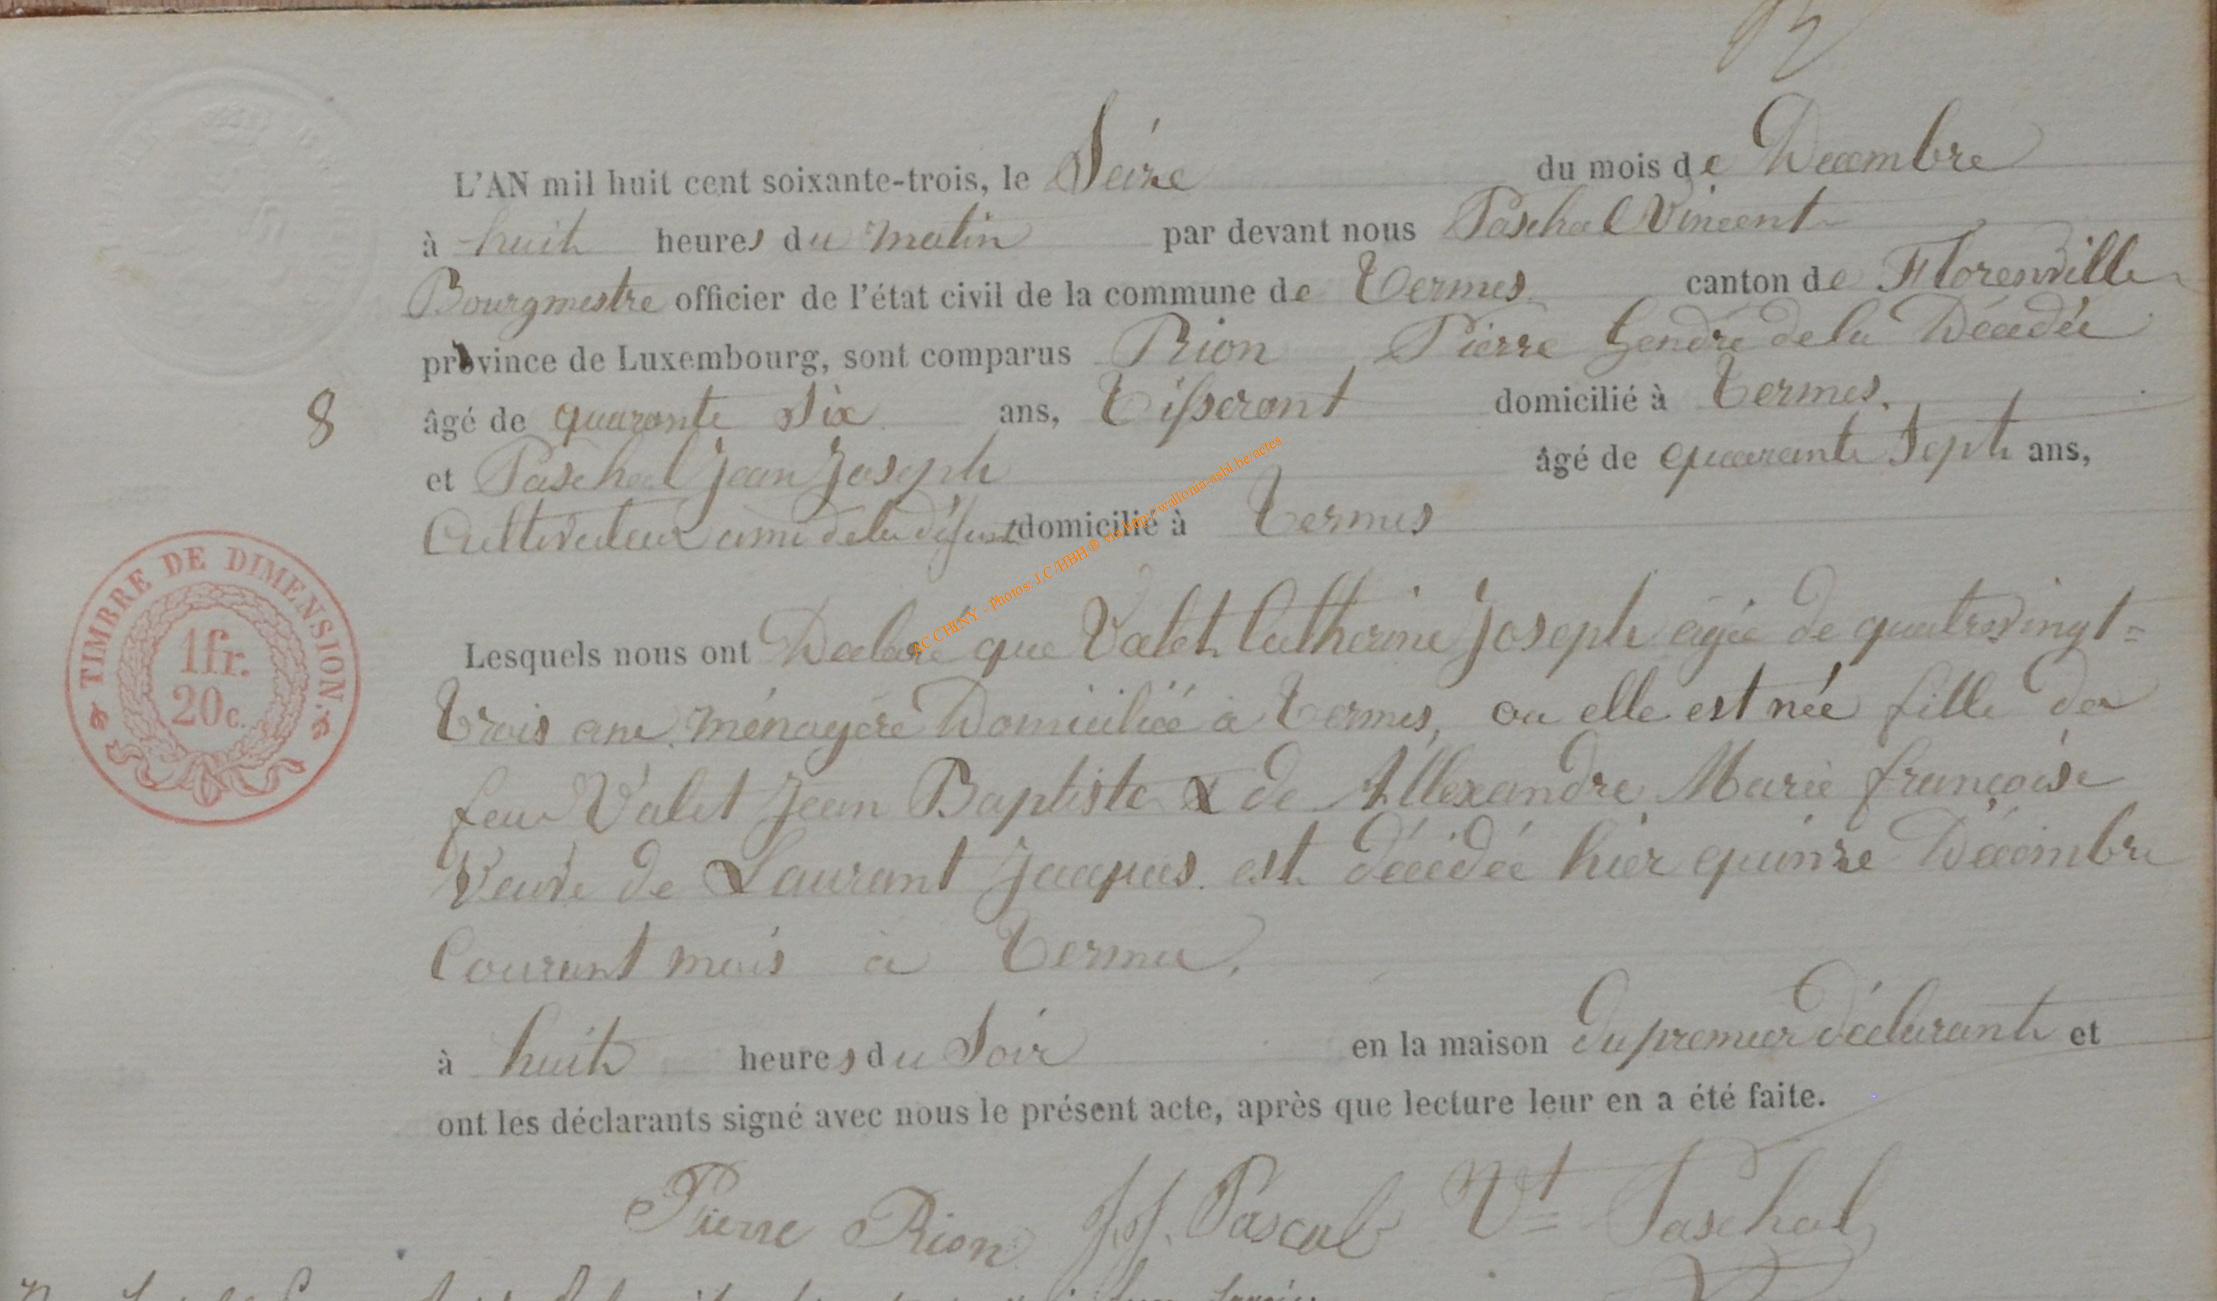 L'AN mil huit cent soixante-trois, le Seize du mois de Decembre
à huit heures du matin par devant nous Paschal Vincent
Bourgmestre officier de l'état civil de la commune de Termes canton de Florenville
province de Luxembourg, sont comparus Rion Pierre Gendre de la Décédée
8 âgé de quarante Six ans, Tisserant domicilié à Termes.
et Paschal Jean Joseph âgé de quarante Sept ans,
Cultivateur ami de la défunt domicilié à Termes
TIMBRE DE DIMENSION.
1fr.
20c.
AC CHINY - Photos: J.C/HBH ® via http://wallonia-asbl.be/actes
Lesquels nous ont Declaré que Valet Catherine Joseph agée de quatrevingt=
Trois ans ménagère Domiciliée à Termes, ou elle est née fille de
feu Valet Jean Baptiste & de Allexandre Marie françoise
Veuve de Laurant Jacques est décédée hier quinze Décembre
Courant mois à Termes.
à huit heures du Soir en la maison du premier déclarant et
ont les déclarants signé avec nous le présent acte, après que lecture leur en a été faite.
Pierre Rion J.J. Pascal Vt Paschal